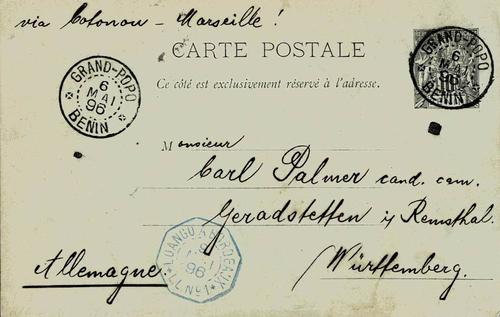 via Cotonou - Marseille!
CARTE POSTALE
Ce côté est exclusivement réservé à l'adresse.
GRAND-POPO
6
MAI
96
BENIN
GRAND-POPO
6
MAI
96
BENIN
Monsieur
Carl Palmer cand. cam.
Geradstetten i/ Remsthal.
Württemberg.
Allemagne.
LOANGO A BORDEAUX
96
L.L. Nº1